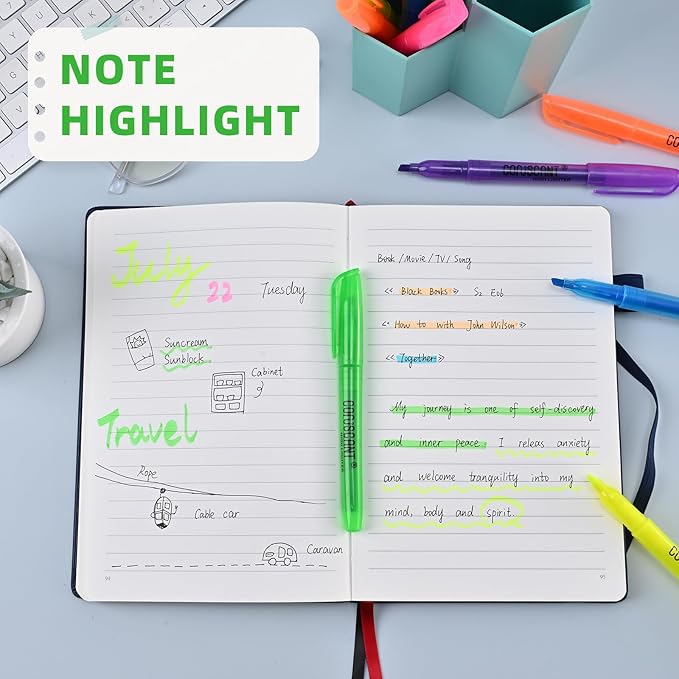 NOTE
HIGHLIGHT
July
22
Tuesday
Suncream
Sunblock
Cabinet
Travel
Rope
Cable car
Caravan
94
Book / Movie / TV / Song
<< Black Books >> S2 E06
<< How to with John Wilson >>
<< Together >>
My journey is one of self-discovery
and inner peace. I releas anxiety
and welcome tranquility into my
mind, body and spirit.
95